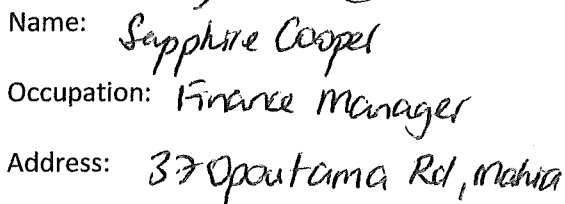 Name: Sapphire Cooper
Occupation: Finance Manager
Address: 37 Opoutama Rd, Mahia